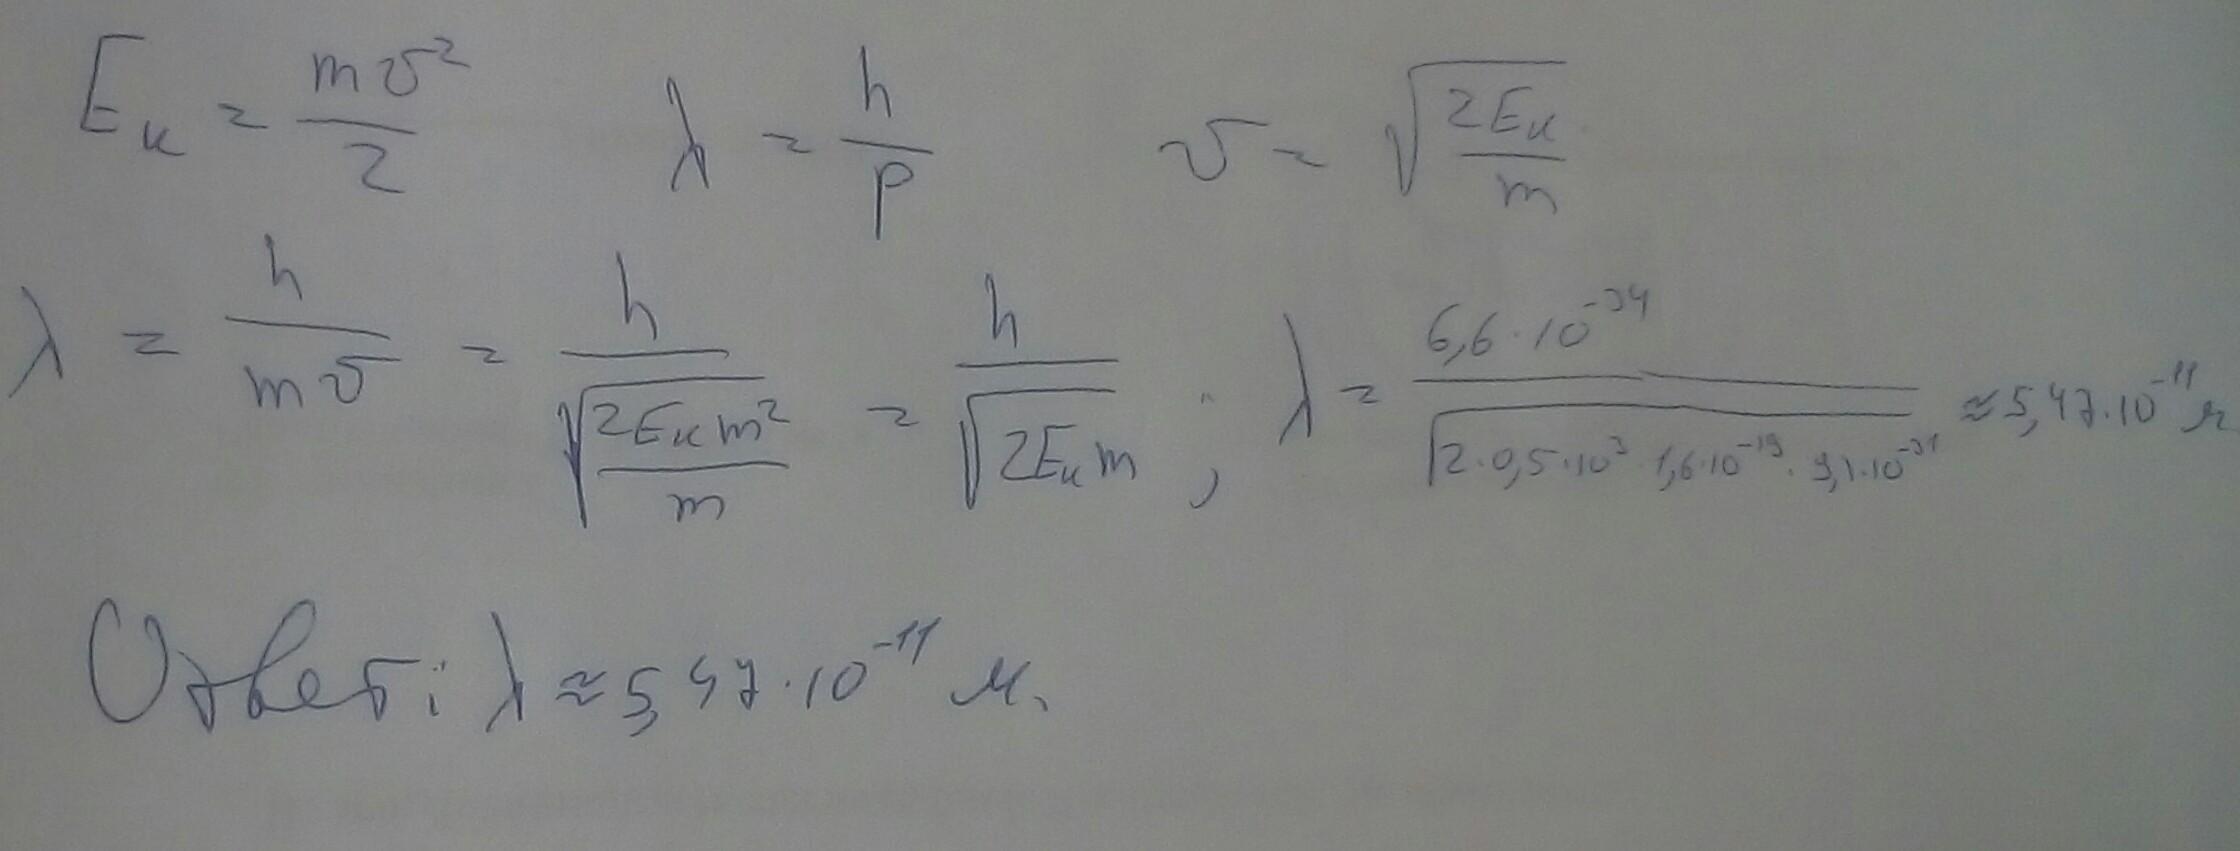 Eк = mv²/2   λ = h/p   v = √(2Eк/m)
λ = h/(mv) = h/√(2Eкm²/m) = h/√(2Eкm) ; λ = 6,6·10⁻³⁴/√(2·0,5·10³·1,6·10⁻¹⁹·9,1·10⁻³¹) ≈ 5,47·10⁻¹¹ м
Ответ: λ ≈ 5,47·10⁻¹¹ м.